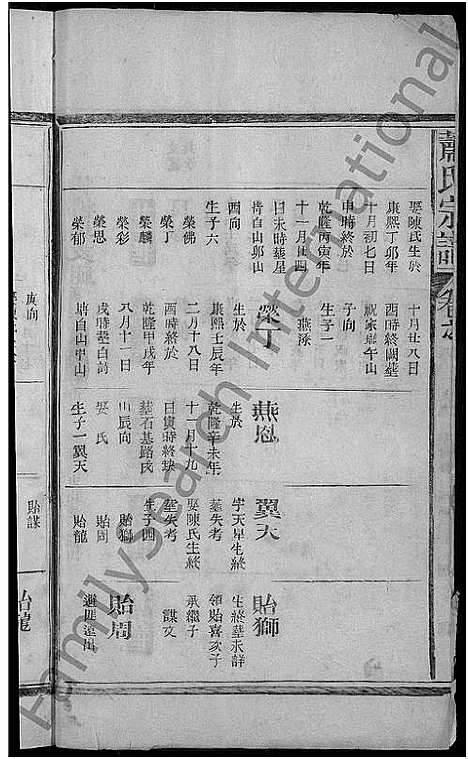 蕭氏宗譜
卷之
娶陳氏生於
康熙丁卯年
十月初七日
申時終於
乾隆丙寅年
十一月廿四
日未時葬星
塘白山卯山
酉向
生子六
榮佛
榮丁
榮麟
榮彩
榮思
榮郁
十月廿八日
酉時終關葬
午山
子向
生子一
燕祿
榮丁
生於
康熙壬辰年
二月十八日
酉時終於
乾隆甲戌年
八月十一日
戌時葬白茜
塘白山里山
庚向
燕恩
生於
乾隆辛未年
十一月十九
日寅時終缺
葬石基路戌
山辰向
娶氏
生子一翼天
翼天
字天昇生終
葬失考
娶陳氏生終
葬失考
生子四
貽獅
貽周
貽龍
貽謀
貽獅
生終葬未詳
領貽喜次子
承繼子
謀文
貽周
避匪遠出
貽龍
FamilySearch International